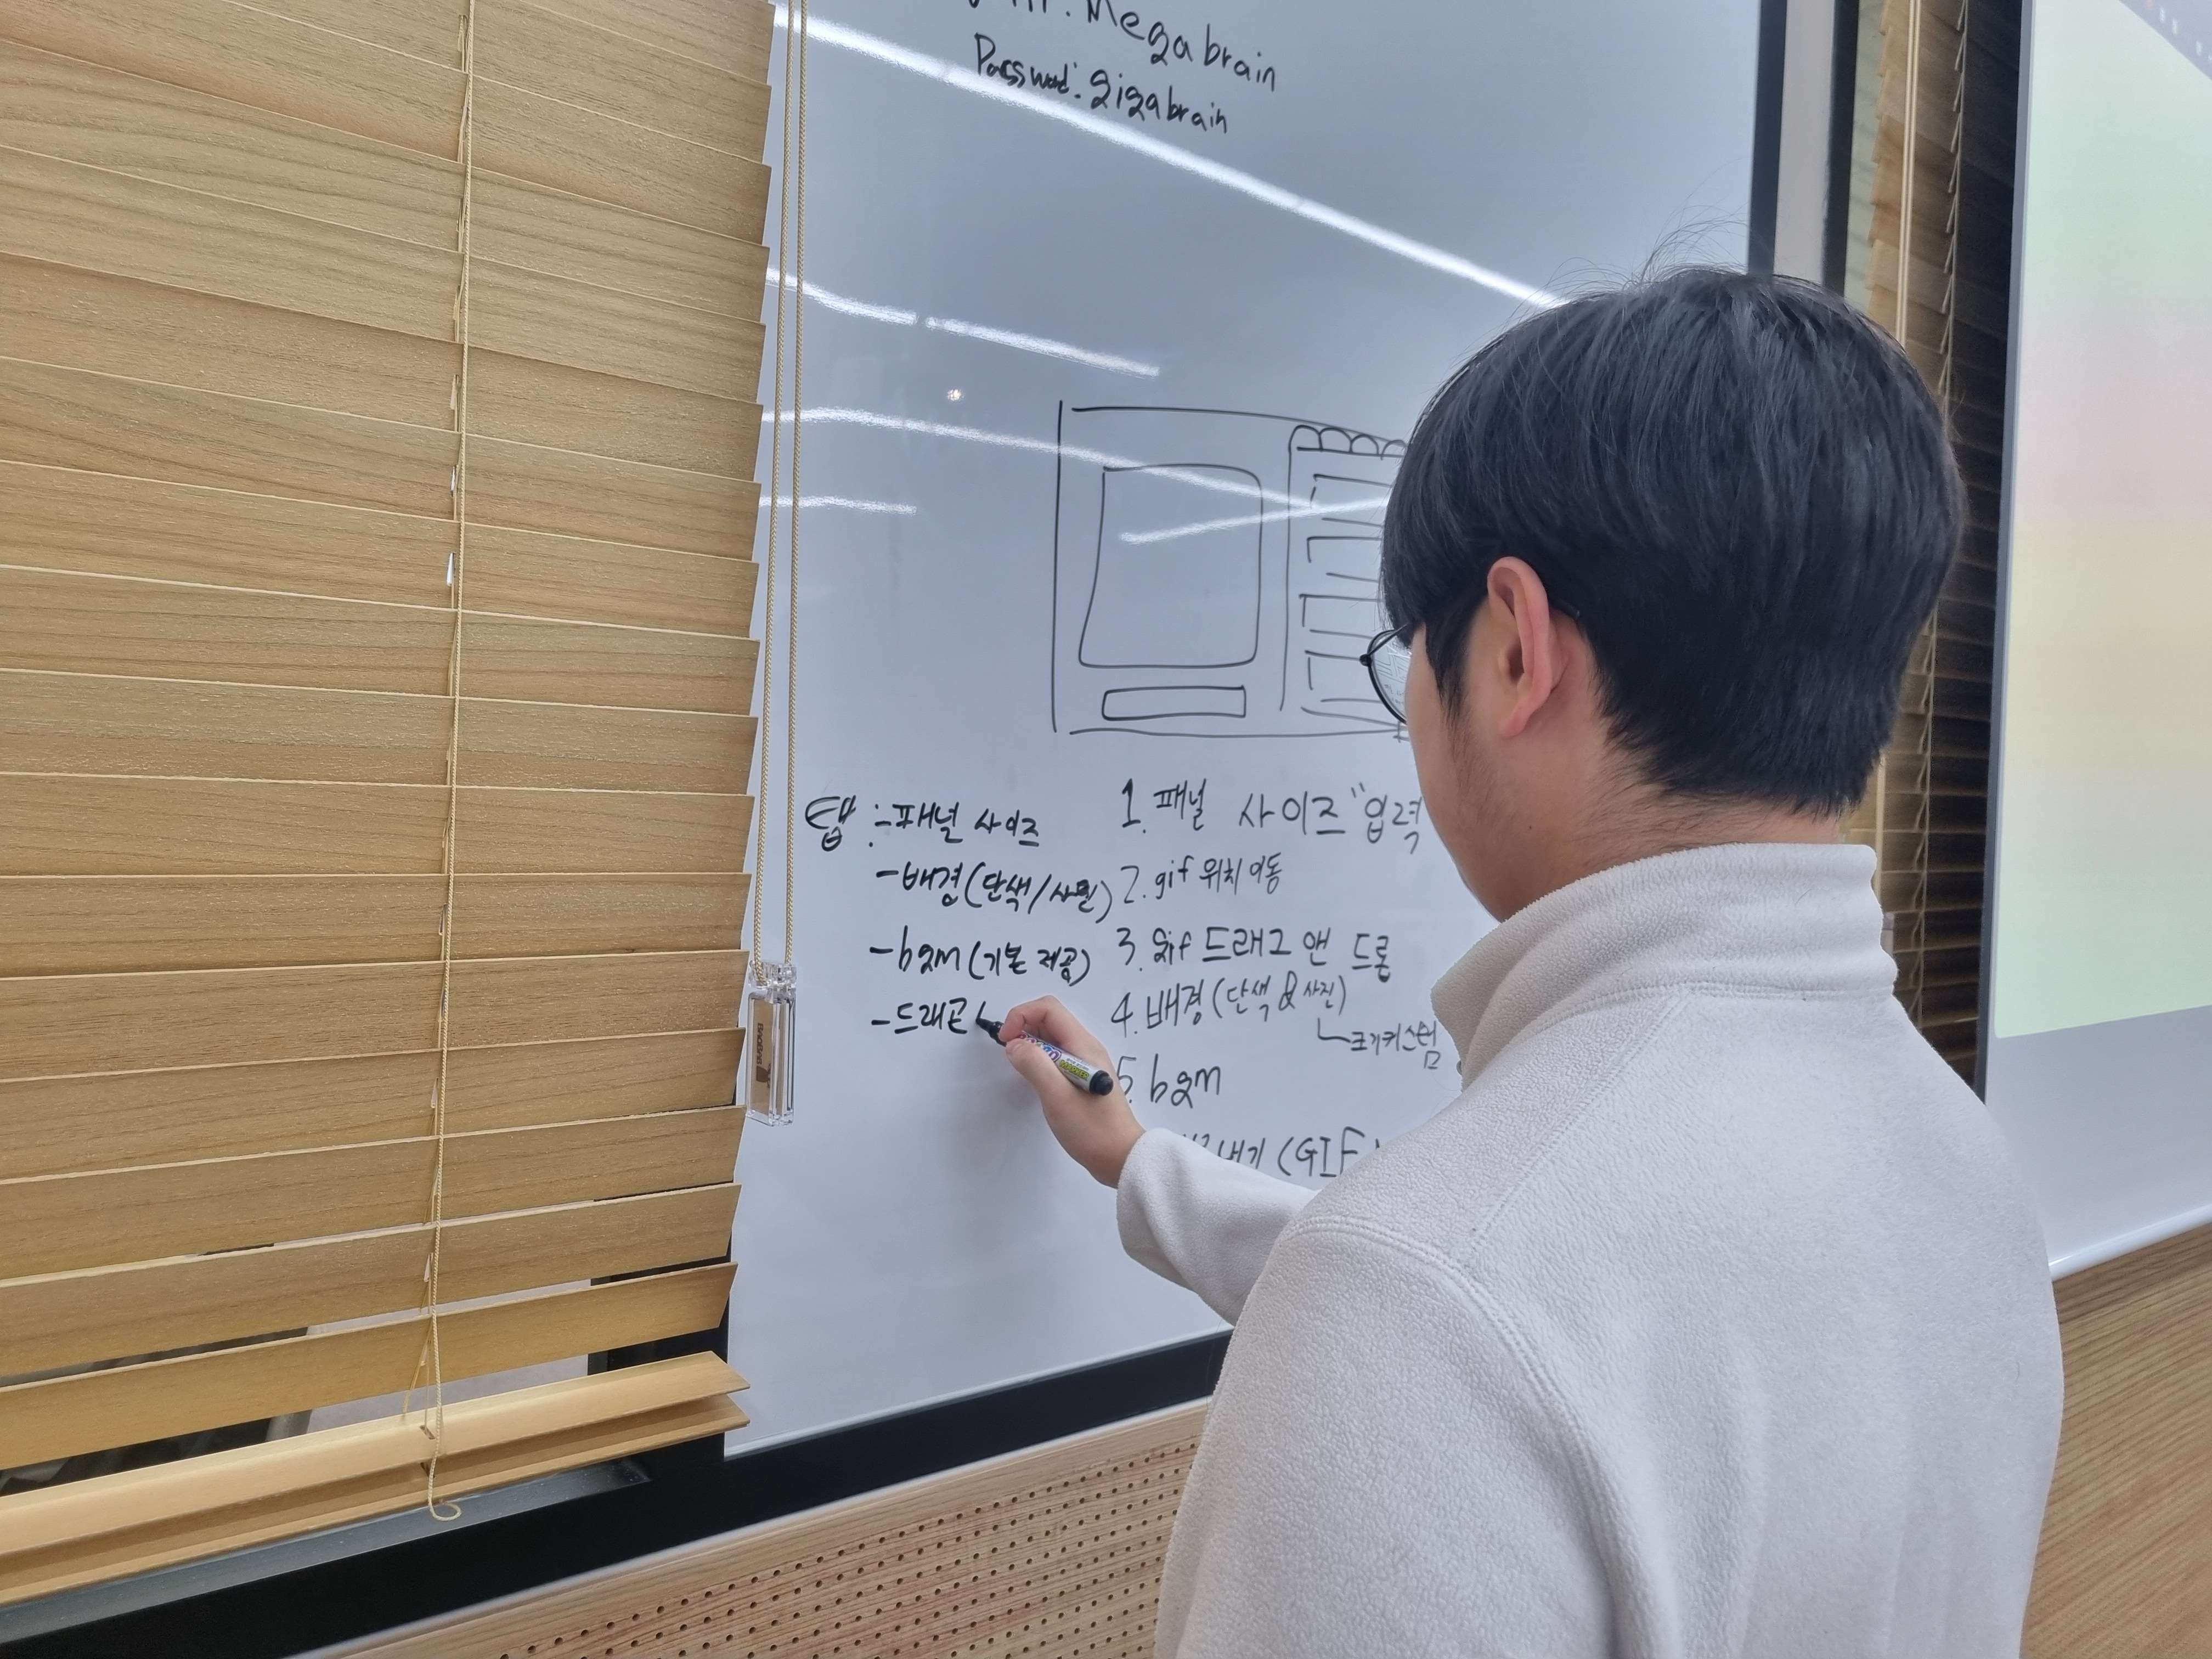 Mr. Megabrain
Password: gigabrain
탭 : - 패널 사이즈
- 배경 (단색/사진)
- bgm (기본 제공)
- 드래곤
1. 패널 사이즈 "입력
2. gif 위치 이동
3. gif 드래그 앤 드롭
4. 배경 (단색 & 사진)
크기 커스텀
5. bgm
내기 (GIF